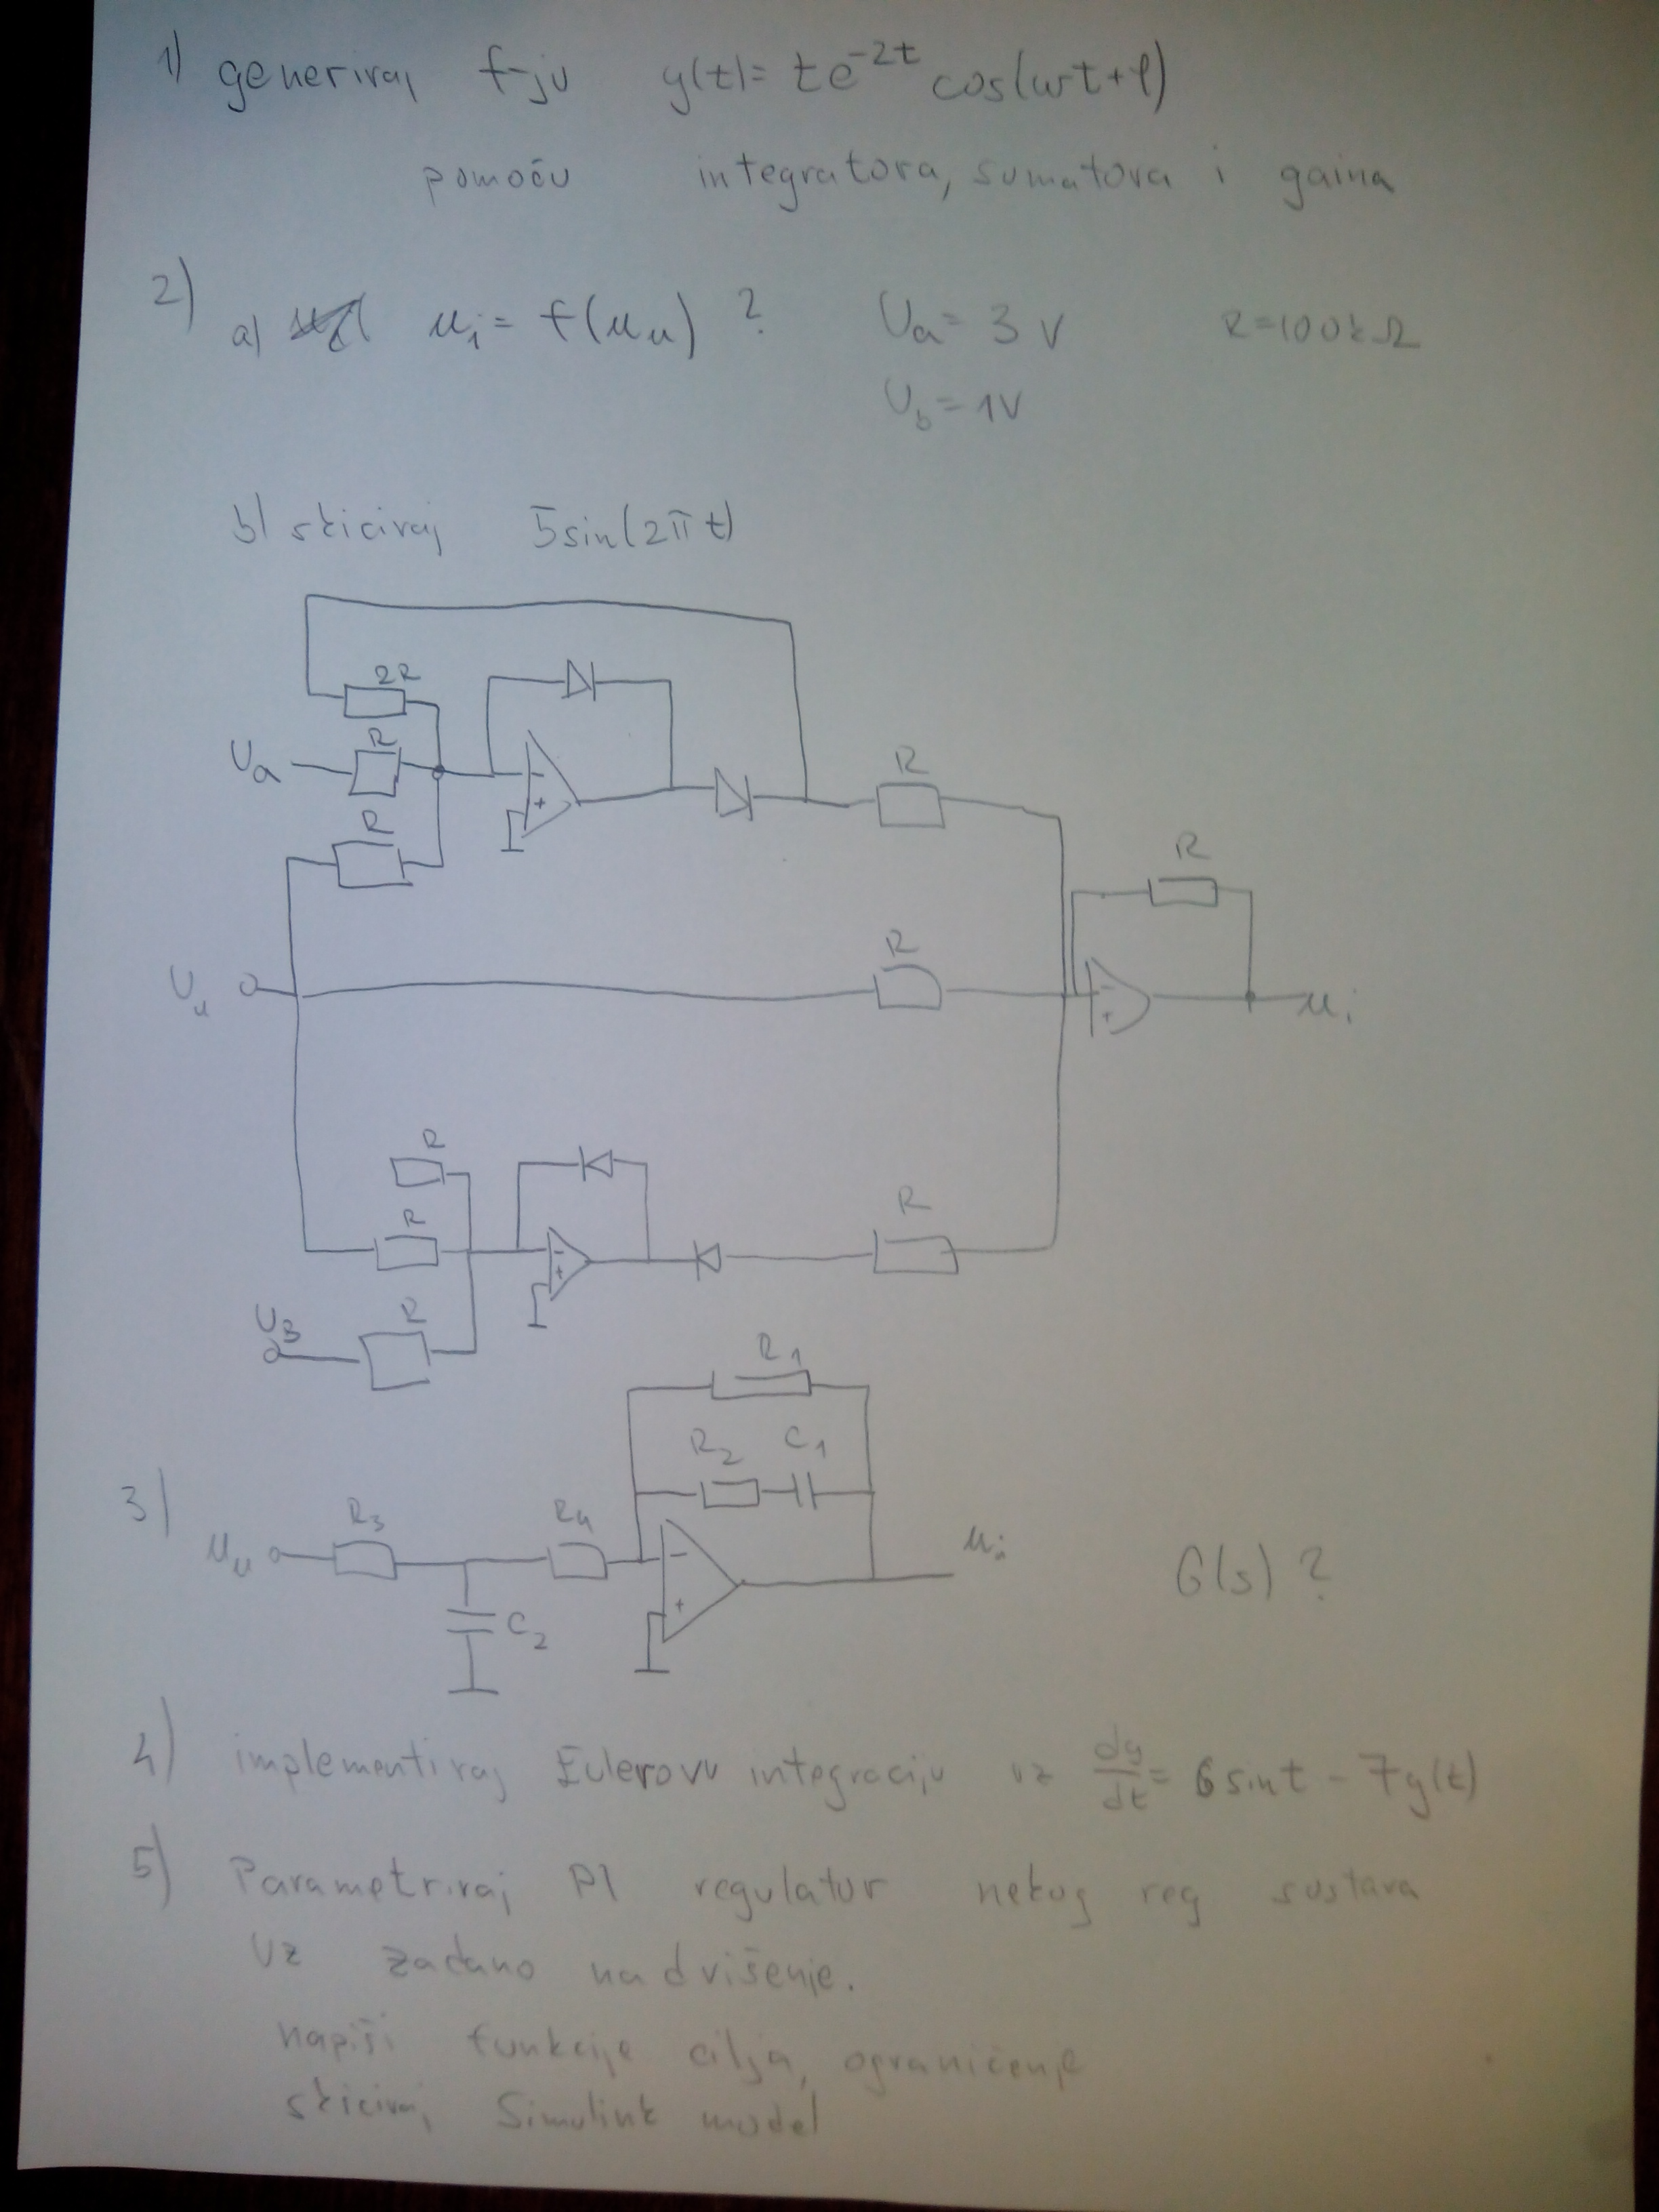 1) generiraj f-ju y(t)= te^-2t cos(ωt+φ)
pomoću integratora, sumatora i gaina
2)
a) u_i= f(u_u) ? U_a= 3 V R=100kΩ
U_b=1V
b) skiciraj 5sin(2πt)
2R
R
U_a
R
R
R
R
U_u
u_i
R
R
R
U_B
R
R_1
R_2 C_1
3)
R_3 R_4
u_u
u_i
G(s) ?
C_2
4) implementiraj Eulerovu integraciju uz dy/dt = 6 sint - 7y(t)
5) Parametriraj PI regulator nekog reg sustava
uz zadano nadvišenje.
napiši funkcije cilja, ograničenje
skiciraj Simulink model